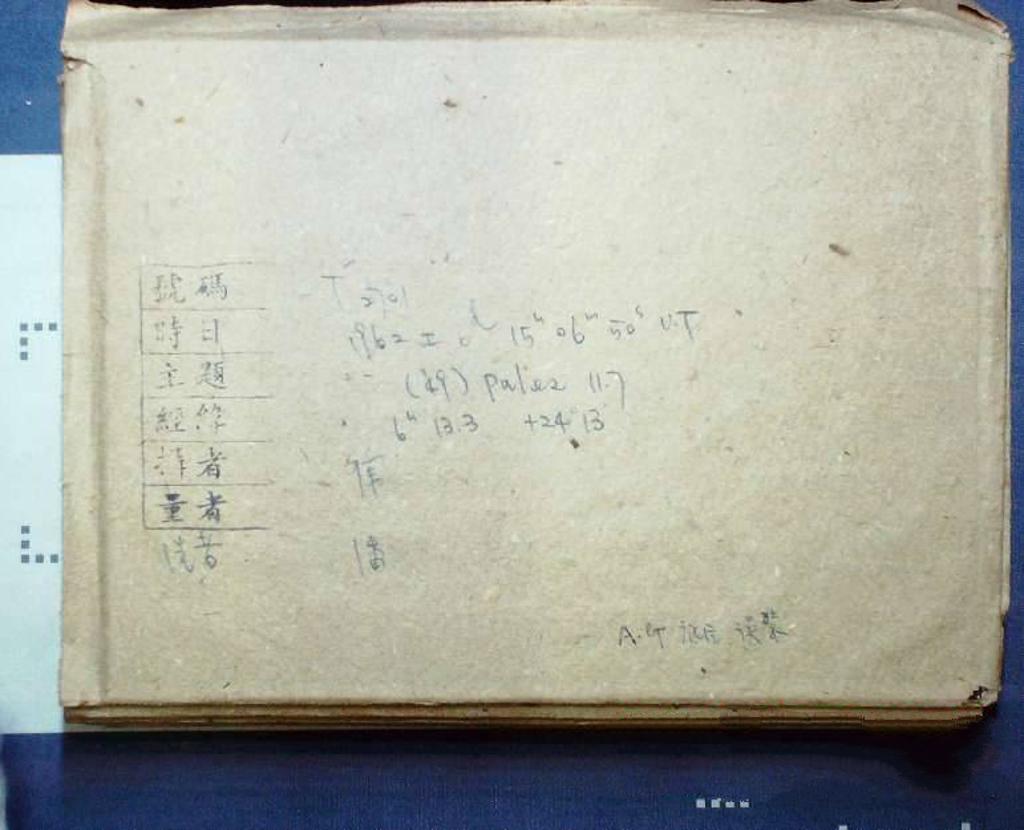 號碼 T 2701
時日 1962 I 15ʰ 06ᵐ 50ˢ U.T
主題 (49) pales 11.7
經緯 6ʰ 13.3 +24° 13
作者 徐
量者
潘